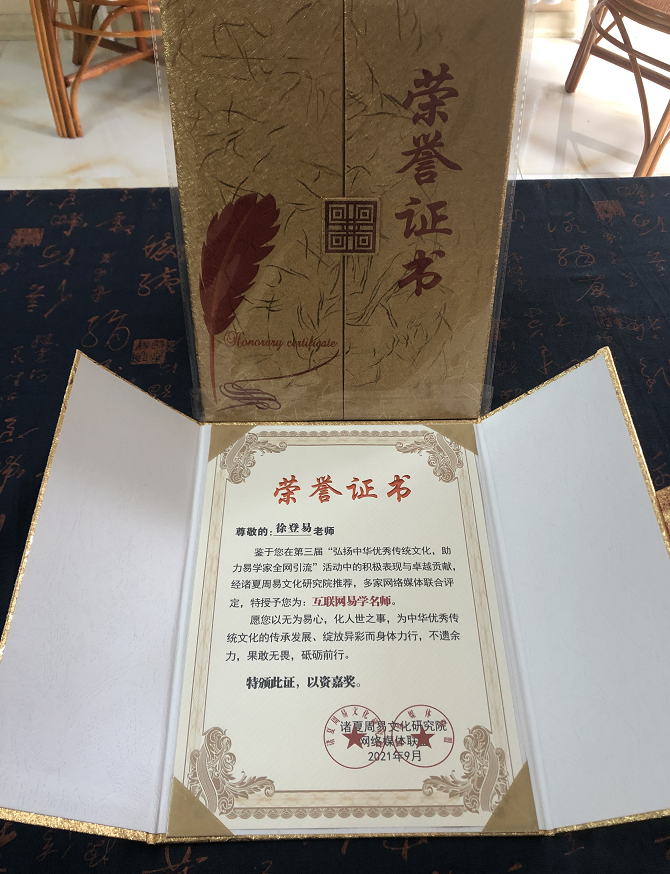 荣誉证书
Honorary certificate
荣誉证书
尊敬的：徐登易老师
鉴于您在第三届“弘扬中华优秀传统文化，助
力易学家全网引流”活动中的积极表现与卓越贡献，
经诸夏周易文化研究院推荐，多家网络媒体联合评
定，特授予您为：互联网易学名师。
愿您以无为易心，化人世之事，为中华优秀传
统文化的传承发展、绽放异彩而身体力行，不遗余
力，果敢无畏，砥砺前行。
特颁此证，以资嘉奖。
诸夏周易文化研究院
网络媒体联盟
2021年9月